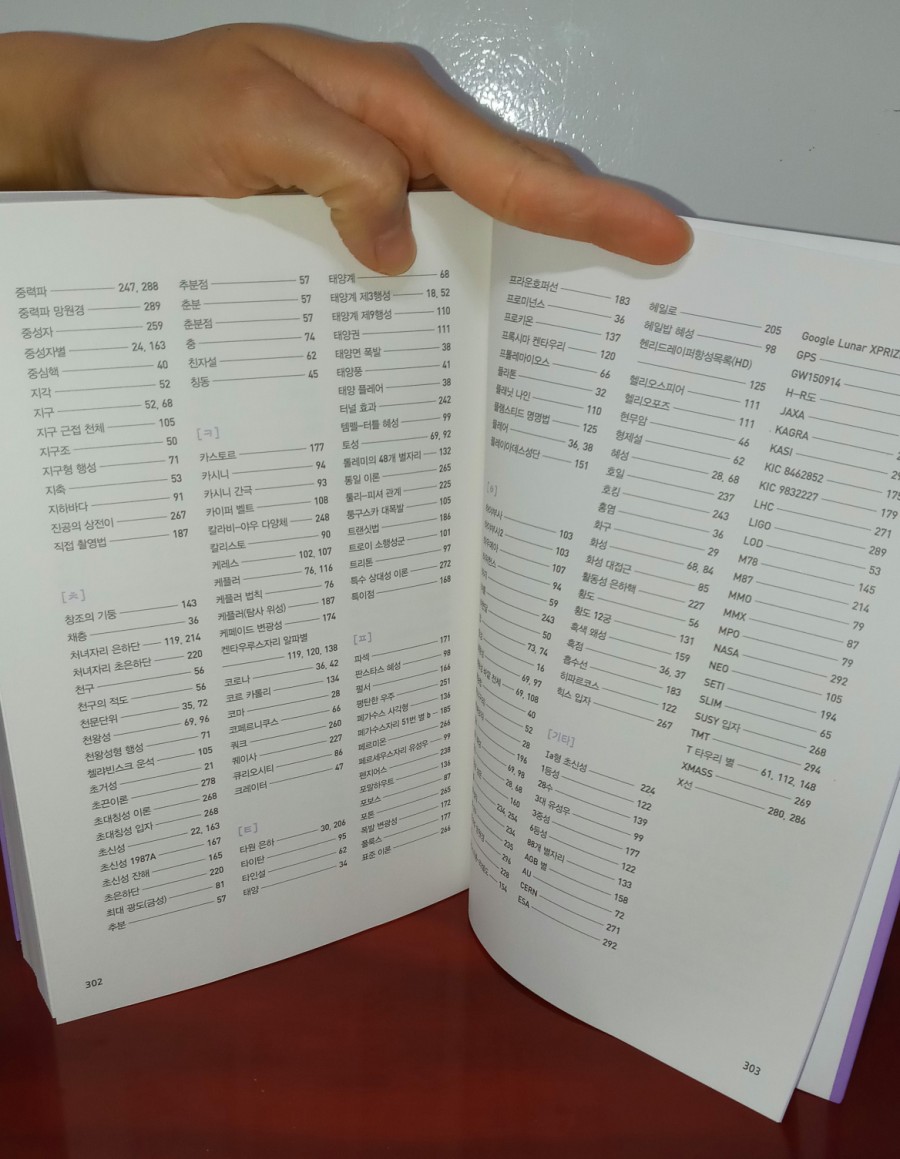 중력파 247, 288
중력파 망원경 289
중성자 259
중성자별 24, 163
중심핵 40
지각 52
지구 52, 68
지구 근접 천체 105
지구조 50
지구형 행성 71
지축 53
지하바다 91
진공의 상전이 267
직접 촬영법 187
[ㅊ]
창조의 기둥 143
채층 36
처녀자리 은하단 119, 214
처녀자리 초은하단 220
천구 56
천구의 적도 56
천문단위 35, 72
천왕성 69, 96
천왕성형 행성 71
첼랴빈스크 운석 105
초거성 21
초끈이론 278
초대칭성 이론 268
초대칭성 입자 268
초신성 22, 163
초신성 1987A 167
초신성 잔해 165
초은하단 220
최대 광도(금성) 81
추분 57
추분점 57
춘분 57
춘분점 57
충 74
친자설 62
칭동 45
[ㅋ]
카스토르 177
카시니 94
카시니 간극 93
카이퍼 벨트 108
칼라비-야우 다양체 248
칼리스토 90
케레스 102, 107
케플러 76, 116
케플러 법칙 76
케플러(탐사 위성) 187
케페이드 변광성 174
켄타우루스자리 알파별
119, 120, 138
코로나 36, 42
코르 카롤리 134
코마 28
코페르니쿠스 66
쿼크 260
퀘이사 227
큐리오시티 86
크레이터 47
[ㅌ]
타원 은하 30, 206
타이탄 95
타인설 62
태양 34
태양계 68
태양계 제3행성 18, 52
태양계 제9행성 110
태양권 111
태양면 폭발 38
태양풍 41
태양 플레어 38
터널 효과 242
템펠-터틀 혜성 99
토성 69, 92
톨레미의 48개 별자리 132
통일 이론 265
툴리-피셔 관계 225
퉁구스카 대폭발 105
트랜싯법 186
트로이 소행성군 101
트리톤 97
특수 상대성 이론 272
특이점 168
[ㅍ]
파섹 171
판스타스 혜성 98
펄서 166
평탄한 우주 251
페가수스 사각형 136
페가수스자리 51번 별 b 185
페르미온 266
페르세우스자리 유성우 99
펜지어스 238
포말하우트 136
포보스 87
포톤 265
폭발 변광성 172
폴룩스 177
표준 이론 266
302
프라운호퍼선 183
프로미넌스 36
프로키온 137
프록시마 켄타우리 120
프톨레마이오스 66
32
플래닛 나인 110
플램스티드 명명법 125
플레어 36, 38
플레이아데스성단 151
[ㅎ]
103
103
107
94
59
243
50
73, 74
16
69, 97
69, 108
40
52
28
196
69, 98
28, 68
160
234, 254
234
235
296
228
154
헤일로 205
헤일밥 혜성 98
헨리드레이퍼항성목록(HD)
125
헬리오스피어 111
헬리오포즈 111
현무암 46
형제설 62
혜성 28, 68
호일 237
호킹 243
홍염 36
화구 29
화성 68, 84
화성 대접근 85
활동성 은하핵 227
황도 56
황도 12궁 131
흑색 왜성 159
흑점 36, 37
흡수선 183
히파르코스 122
힉스 입자 267
[기타]
Ia형 초신성 224
1등성 122
28수 139
3대 유성우 99
3중성 177
6등성 122
88개 별자리 133
AGB 별 158
AU 72
CERN 271
ESA 292
Google Lunar XPRIZ
GPS
GW150914
H-R도
JAXA
KAGRA
KASI
KIC 8462852 175
KIC 9832227 179
LHC 271
LIGO 289
LOD 53
M78 145
M87 214
MMO 79
MMX 87
MPO 79
NASA 292
NEO 105
SETI 194
SLIM 65
SUSY 입자 268
TMT 294
T 타우리 별 61, 112, 148
XMASS 269
X선 280, 286
303